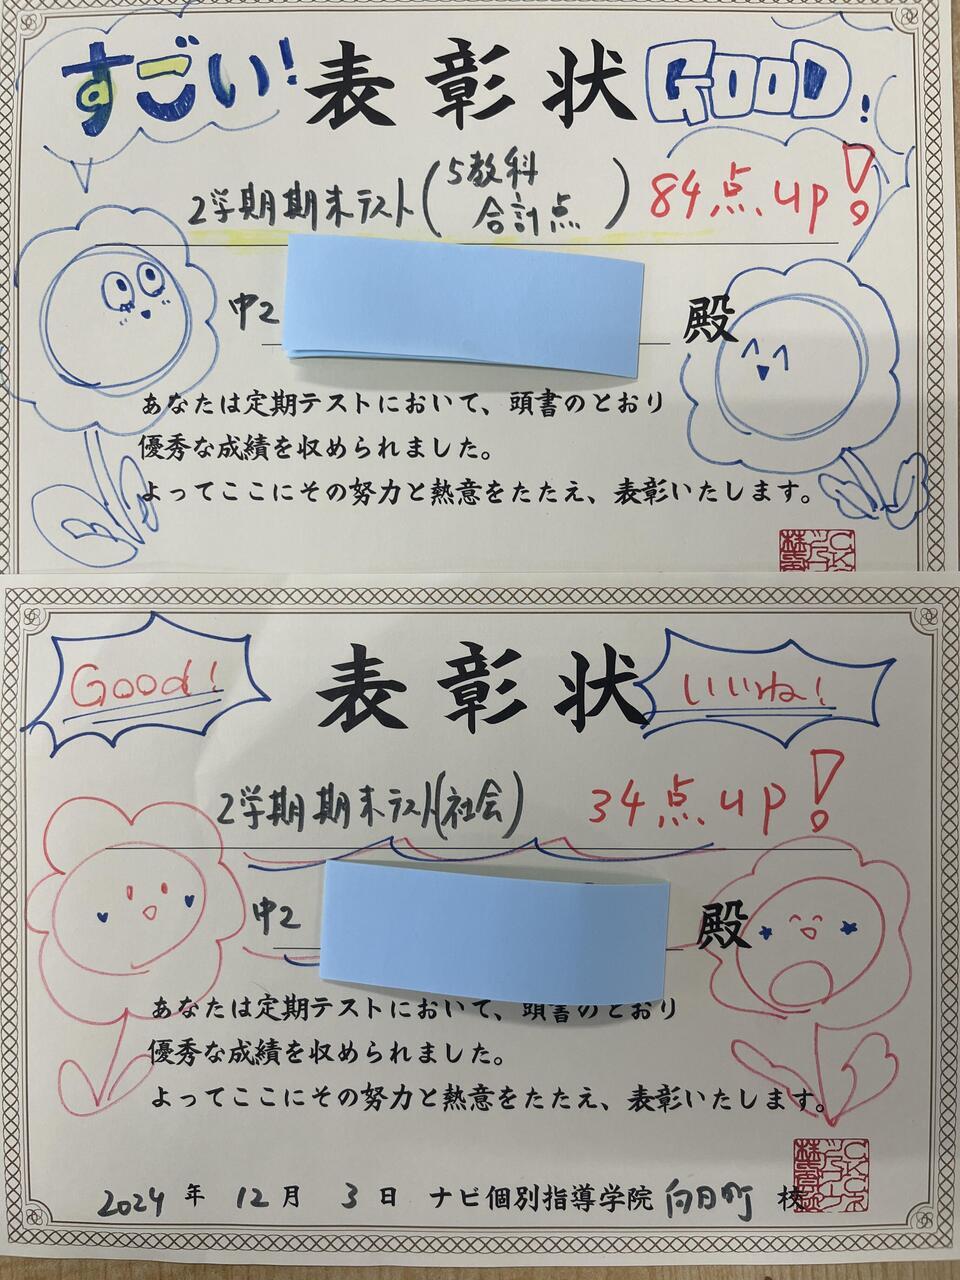 すごい! 表彰状 GOOD!
2学期期末テスト(5教科合計点) 84点up!
中2 殿
あなたは定期テストにおいて、頭書のとおり
優秀な成績を収められました。
よってここにその努力と熱意をたたえ、表彰いたします。
Good! 表彰状 いいね!
2学期期末テスト(社会) 34点up!
中2 殿
あなたは定期テストにおいて、頭書のとおり
優秀な成績を収められました。
よってここにその努力と熱意をたたえ、表彰いたします。
2024年 12月 3日 ナビ個別指導学院 向日町 校